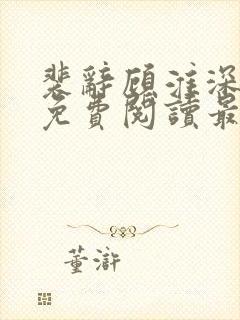 裴辭顧淮深
免費閱讀最
董滸